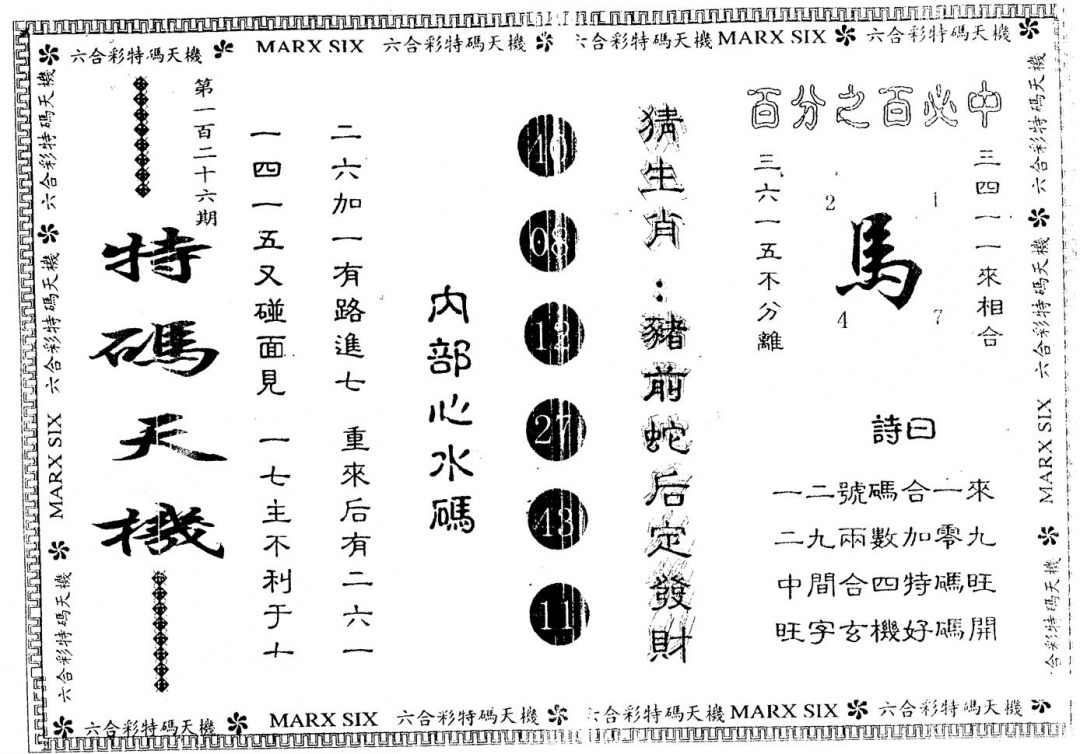 六合彩特碼天機 MARX SIX 六合彩特碼天機 六合彩特碼天機 MARX SIX 六合彩特碼天機
六合彩特碼天機 六合彩特碼天機 MARX SIX 六合彩特碼天機
百分之百必中
三四一一來相合
1
2
馬
7
4
三六一五不分離
詩曰
一二號碼合一來
二九兩數加零九
中間合四特碼旺
旺字玄機好碼開
猜生肖：豬前蛇后定發財
08
12
27
43
11
內部心水碼
二六加一有路進七 重來后有二六一
一四一五又碰面見 一七主不利于十
第一百二十六期
特碼天機
六合彩特碼天機 六合彩特碼天機 MARX SIX 合彩特碼天機
六合彩特碼天機 MARX SIX 六合彩特碼天機 六合彩特碼天機 MARX SIX 六合彩特碼天機